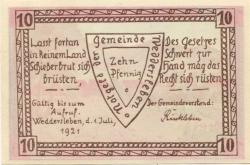 10
10
Lasst fortan
in Reinem Land
Schieberbrut sich
brüsten,
Gemeinde
Weddersleben
Zehn
Pfennig
Des Gesetzes
Schwert zur
Hand mög das
Recht sich rüsten
Gültig bis zum
Aufruf.
Weddersleben, d. 1. Juli,
1921
Der Gemeindevorstand:
10
10